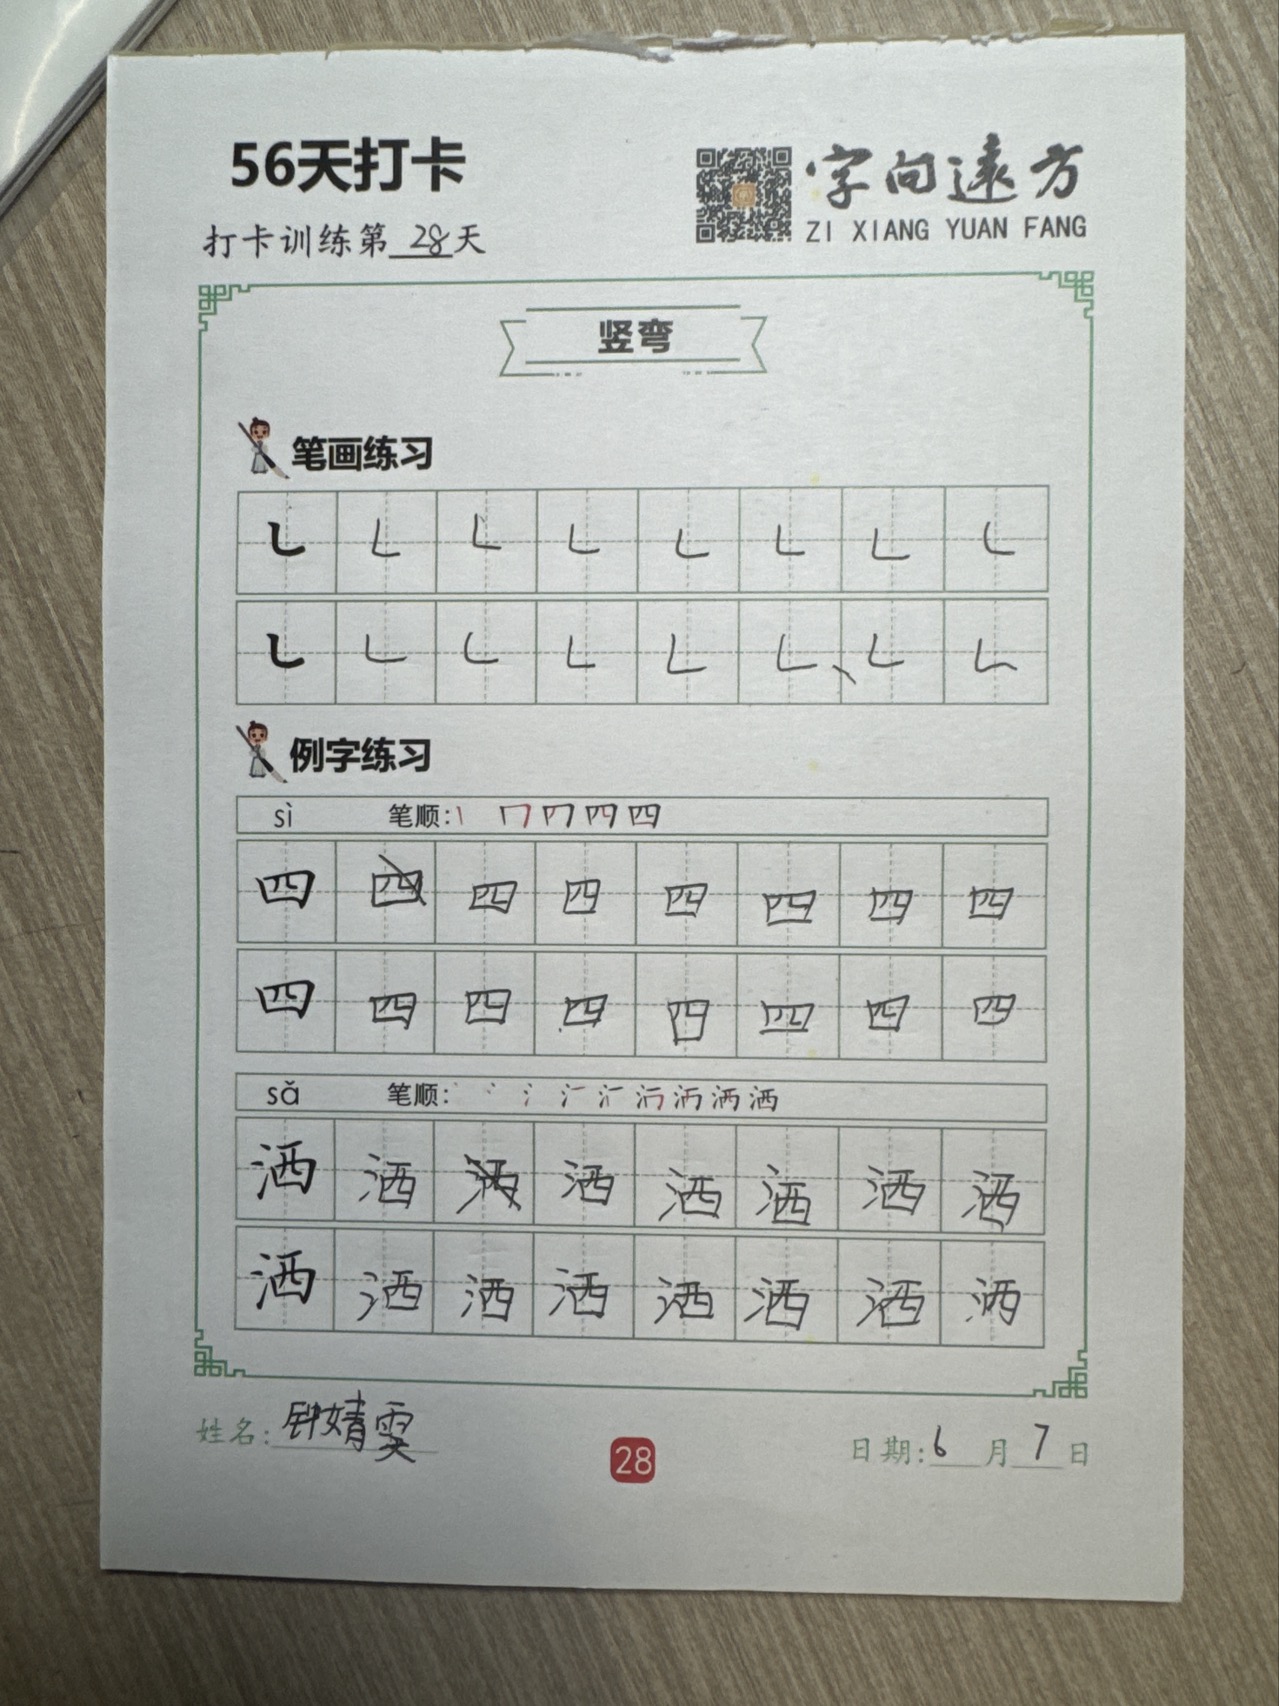 56天打卡
字向遠方
打卡训练第28天
ZI XIANG YUAN FANG
竖弯
笔画练习
㇄ ㇄ ㇄ ㇄ ㇄ ㇄ ㇄ ㇄
㇄ ㇄ ㇄ ㇄ ㇄ ㇄ ㇄ ㇄
例字练习
sì 笔顺:
四 四 四 四 四 四 四 四
四 四 四 四 四 四 四 四
sǎ 笔顺:
洒 洒 洒 洒 洒 洒 洒 洒
洒 洒 洒 洒 洒 洒 洒 洒
姓名:钟婧雯
28
日期:6月7日